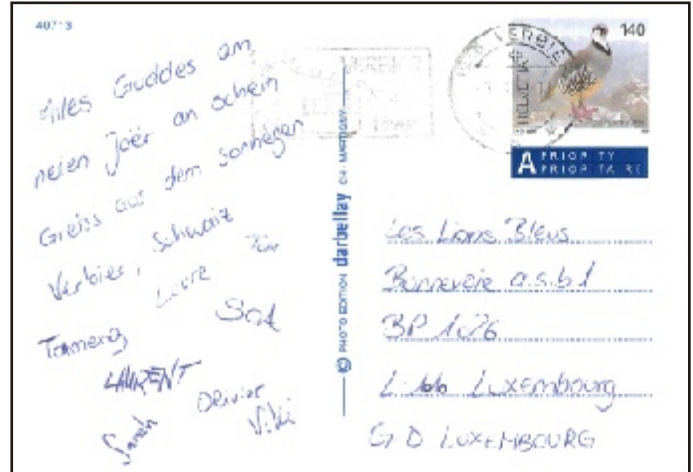 40713
Alles Guddes am
neien Joër an schein
Greiss aus dem sonnegen
Verbier, Schweiz
Laure
Sat
LAURENT
Olivier
Sarah
Vicki
© PHOTO EDITION darbellay CH - MARTIGNY
VERBIER
HELVETIA
140
A PRIORITY
PRIORITAIRE
Les Lions Bleus
Bonnevoie a.s.b.l
BP 1026
Luxembourg
G D LUXEMBOURG